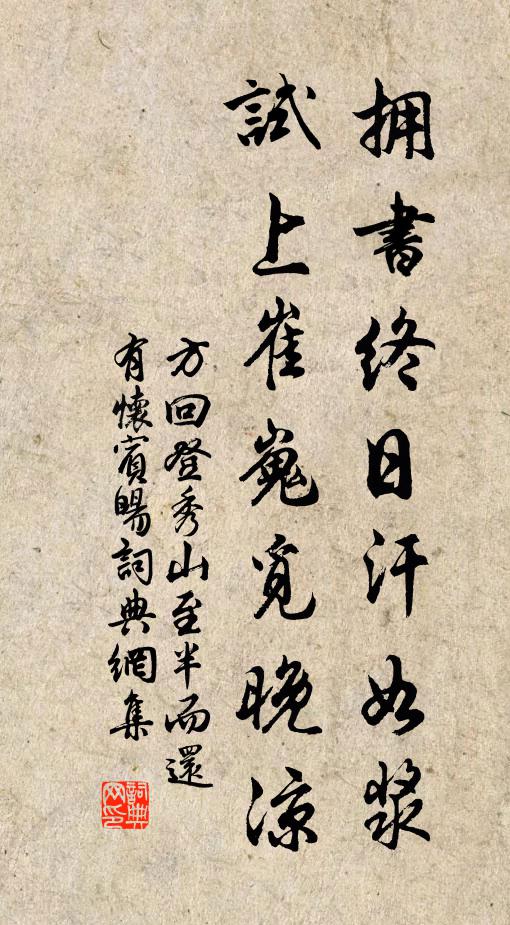 拥書終日汗如漿
試上崔嵬覓晚涼
方回登秀山至半而還
有懷賓暘詞典網集
詞典网印